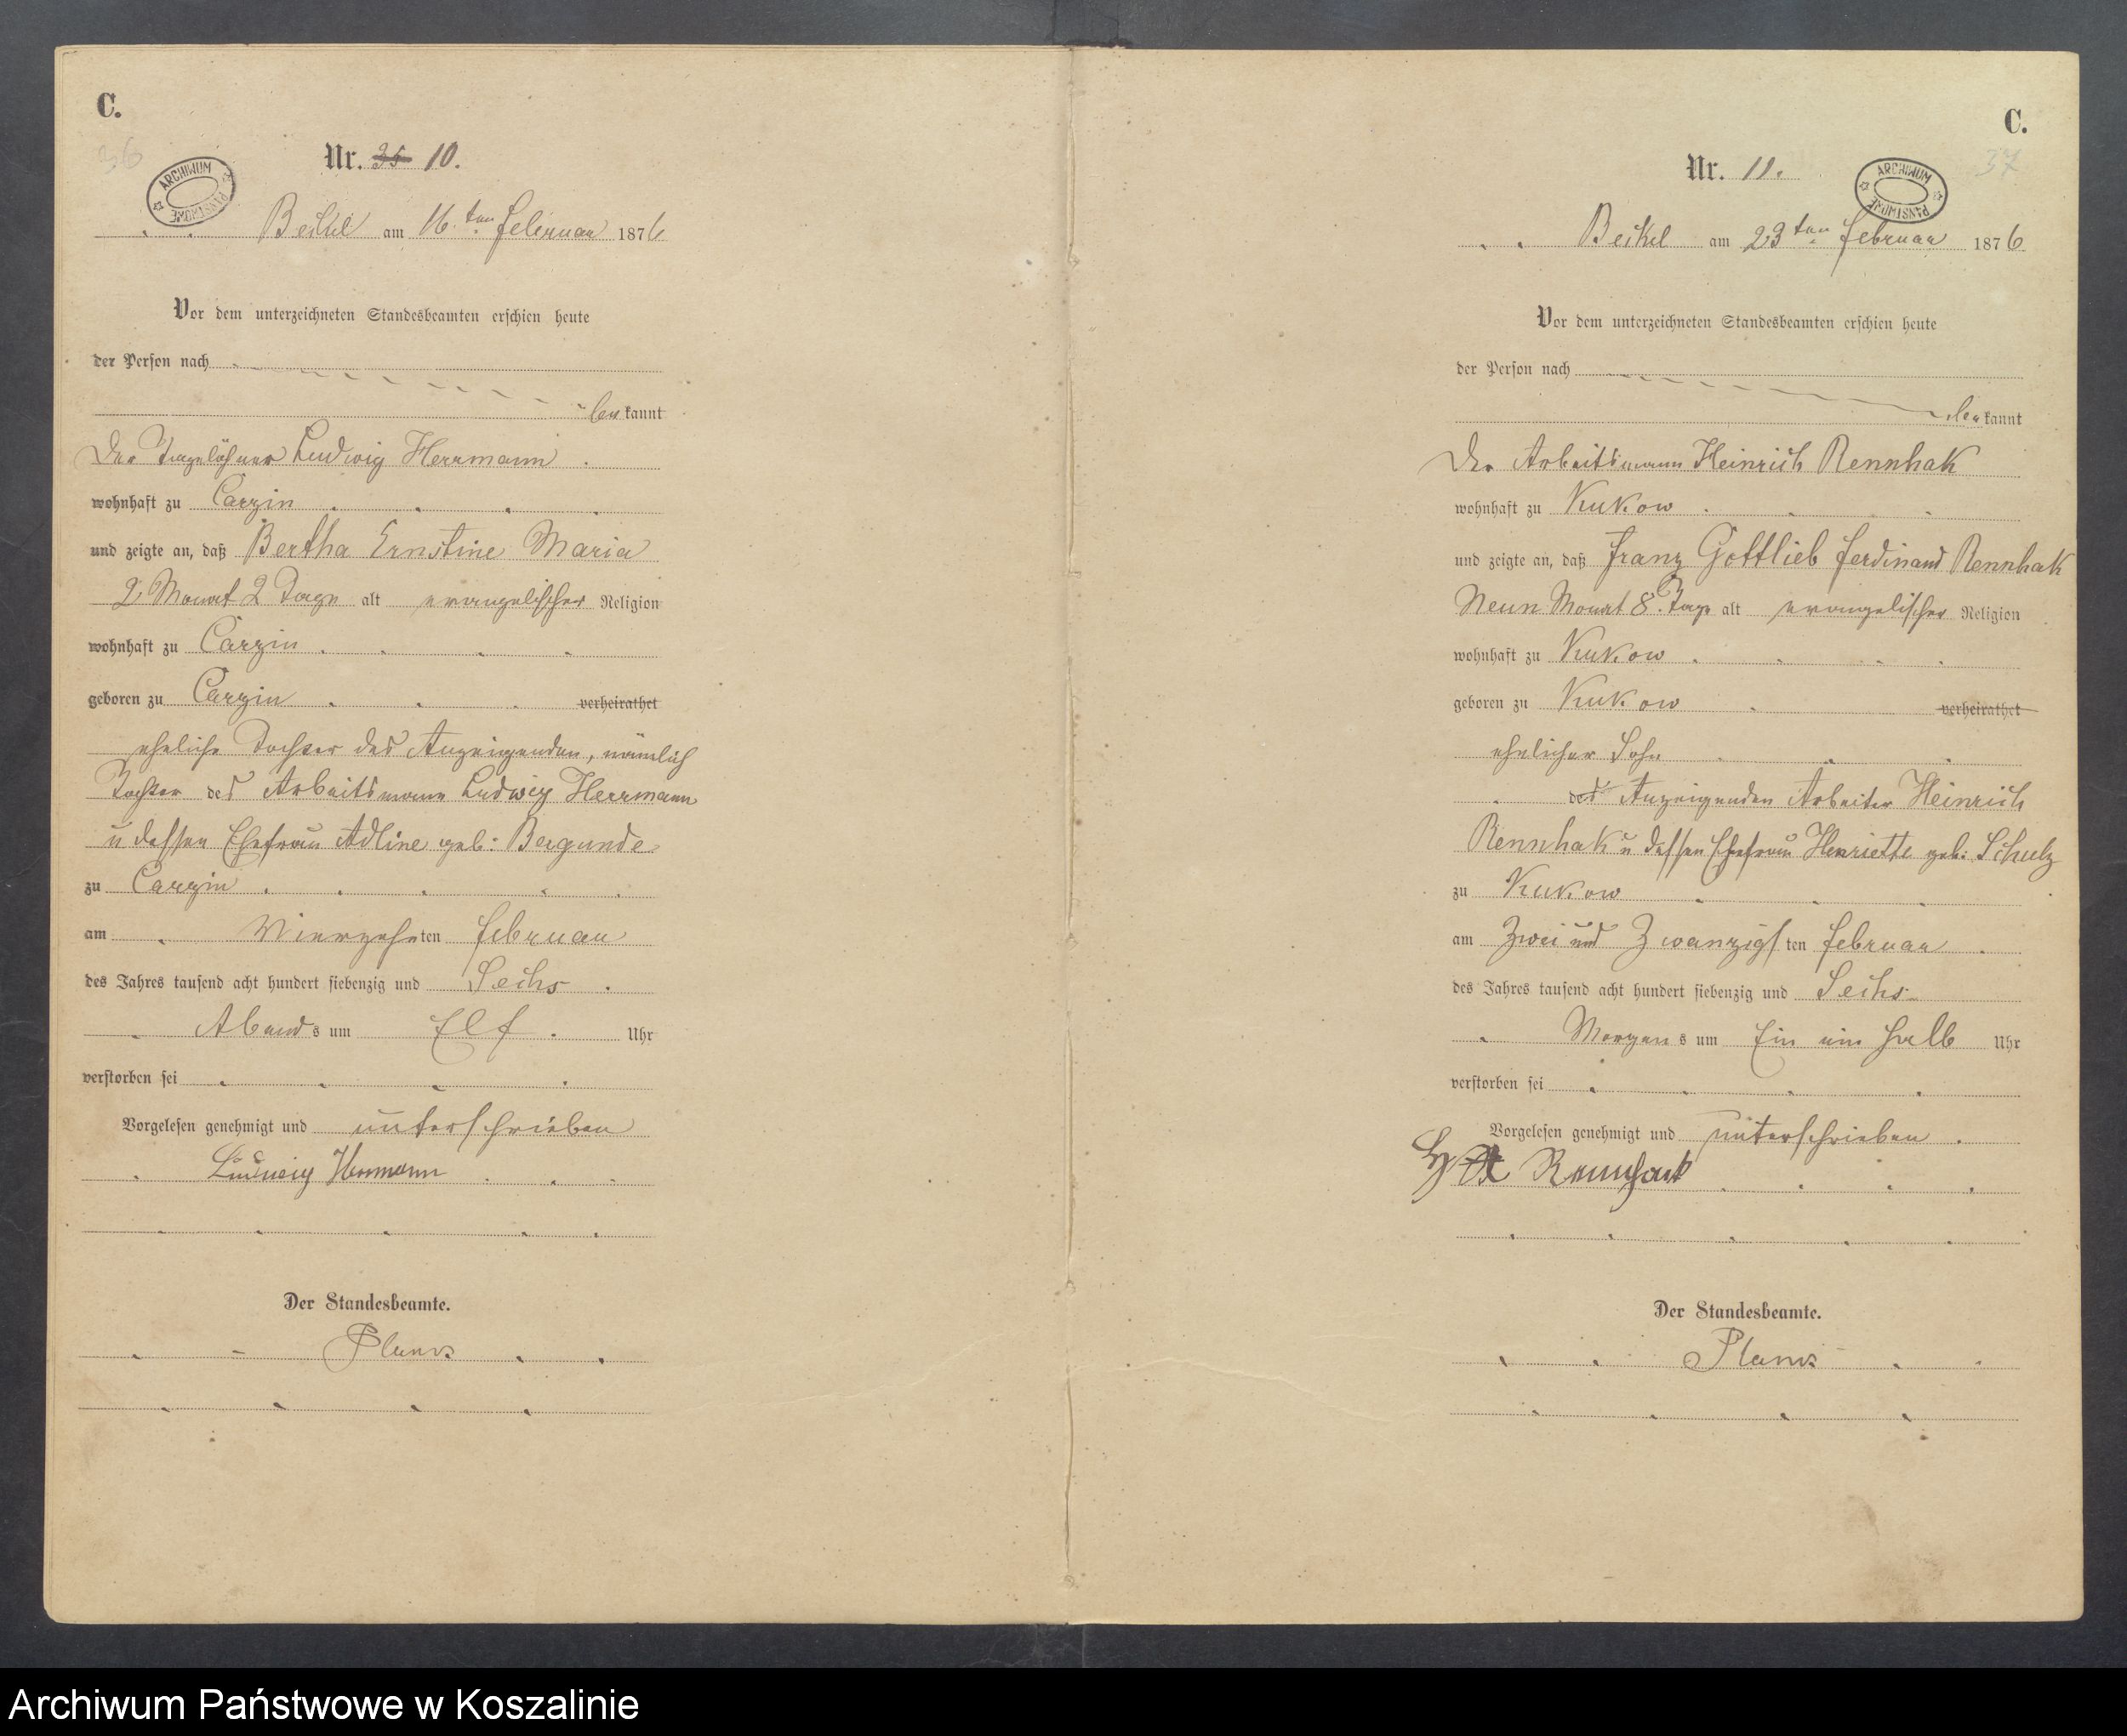 C.
36
ARCHIWUM PAŃSTWOWE
Nr. 35 10.
Beckel am 16ten Februar 1876
Vor dem unterzeichneten Standesbeamten erschien heute
der Person nach
bekannt
Der Tagelöhner Ludwig Herrmann
wohnhaft zu Carzin
und zeigte an, daß Bertha Ernstine Maria
2 Monat 2 Tage alt evangelischer Religion
wohnhaft zu Carzin
geboren zu Carzin verheirathet
eheliche Tochter des Anzeigenden, nämlich
Tochter des Arbeitsmann Ludwig Herrmann
u dessen Ehefrau Adline geb: Bergunde
zu Carzin
am Vierzehnten Februar
des Jahres tausend acht hundert siebenzig und Sechs
Abends um Elf Uhr
verstorben sei
Vorgelesen genehmigt und unterschrieben
Ludwig Herrmann
Der Standesbeamte.
C.
37
ARCHIWUM PAŃSTWOWE
Nr. 11.
Beckel am 23ten Februar 1876
Vor dem unterzeichneten Standesbeamten erschien heute
der Person nach
bekannt
Der Arbeitsmann Heinrich Rennhak
wohnhaft zu Kukow
und zeigte an, daß Franz Gottlieb Ferdinand Rennhak
Neun Monat 8 Tage alt evangelischer Religion
wohnhaft zu Kukow
geboren zu Kukow verheirathet
ehelicher Sohn
des Anzeigenden Arbeiter Heinrich
Rennhak u dessen Ehefrau Henriette geb: Schulz
zu Kukow
am Zwei und Zwanzigsten Februar
des Jahres tausend acht hundert siebenzig und Sechs
Morgens um Ein ein halb Uhr
verstorben sei
Vorgelesen genehmigt und unterschrieben.
Rennhack
Der Standesbeamte.
Archiwum Państwowe w Koszalinie